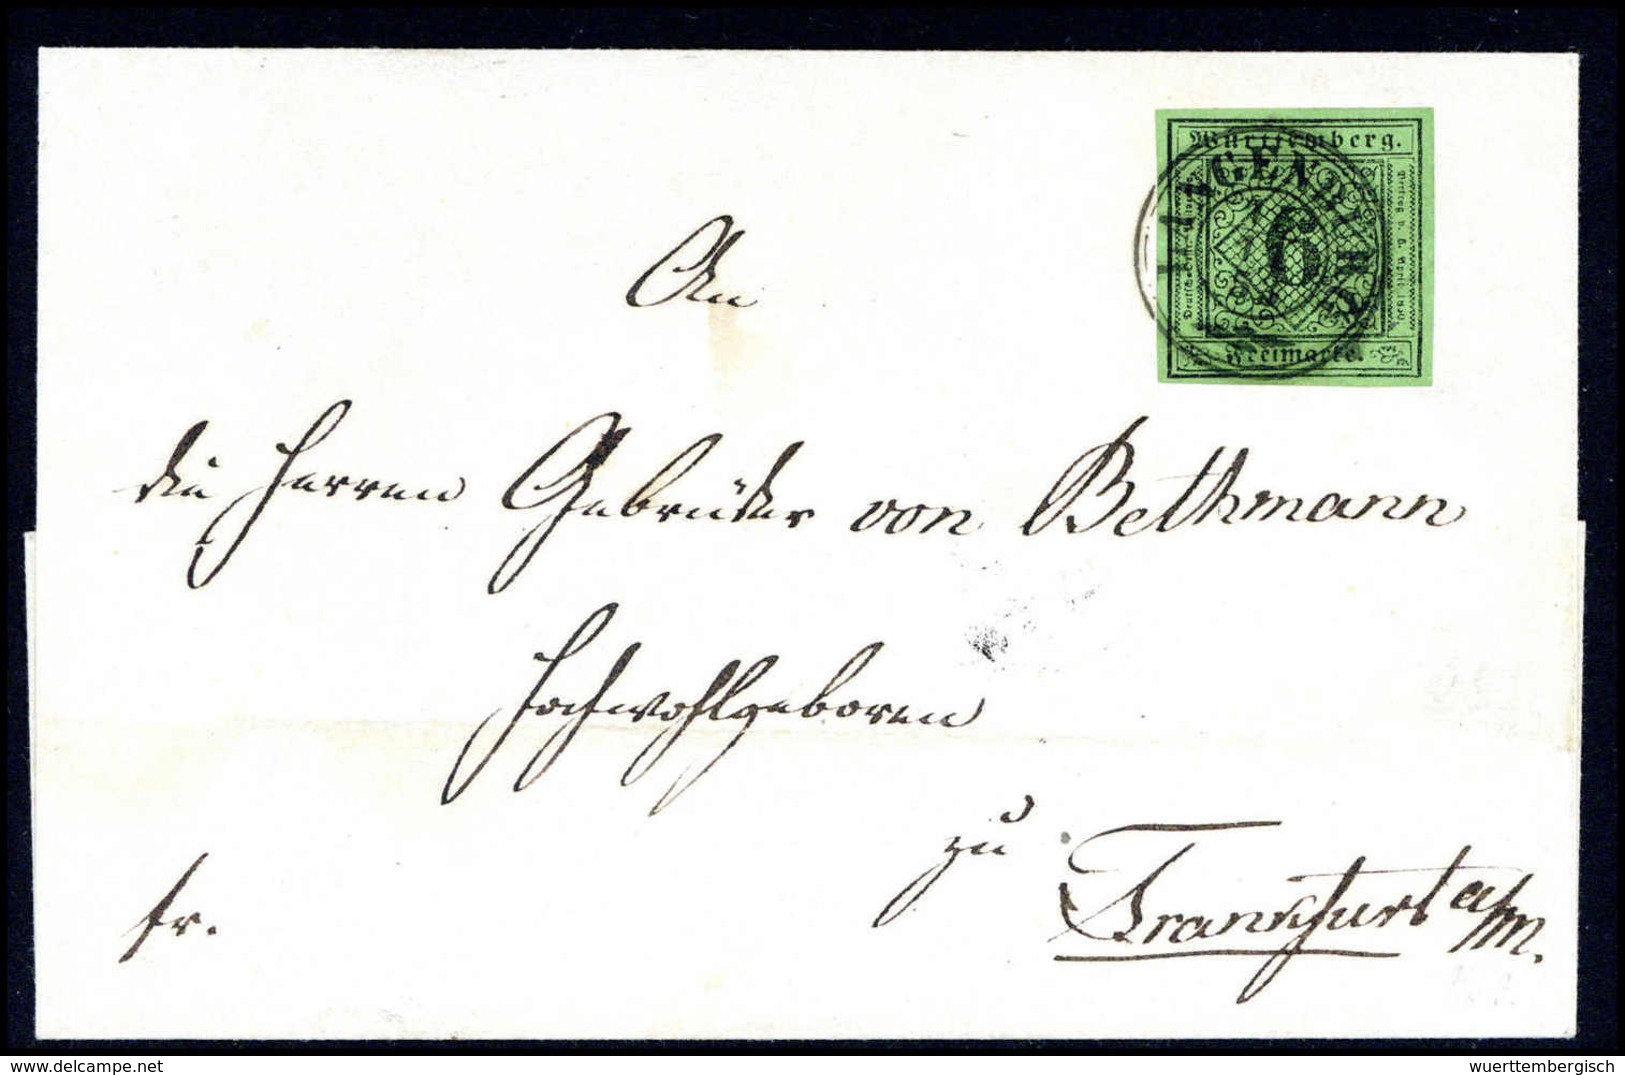 Württemberg.
6
Freimarke.
LANGENBURG
An
die Herren Gebrüder von Bethmann
Hochwohlgeboren
zu
Frankfurt a/m.
fr.
© www.delcampe.net
wuerttembergisch